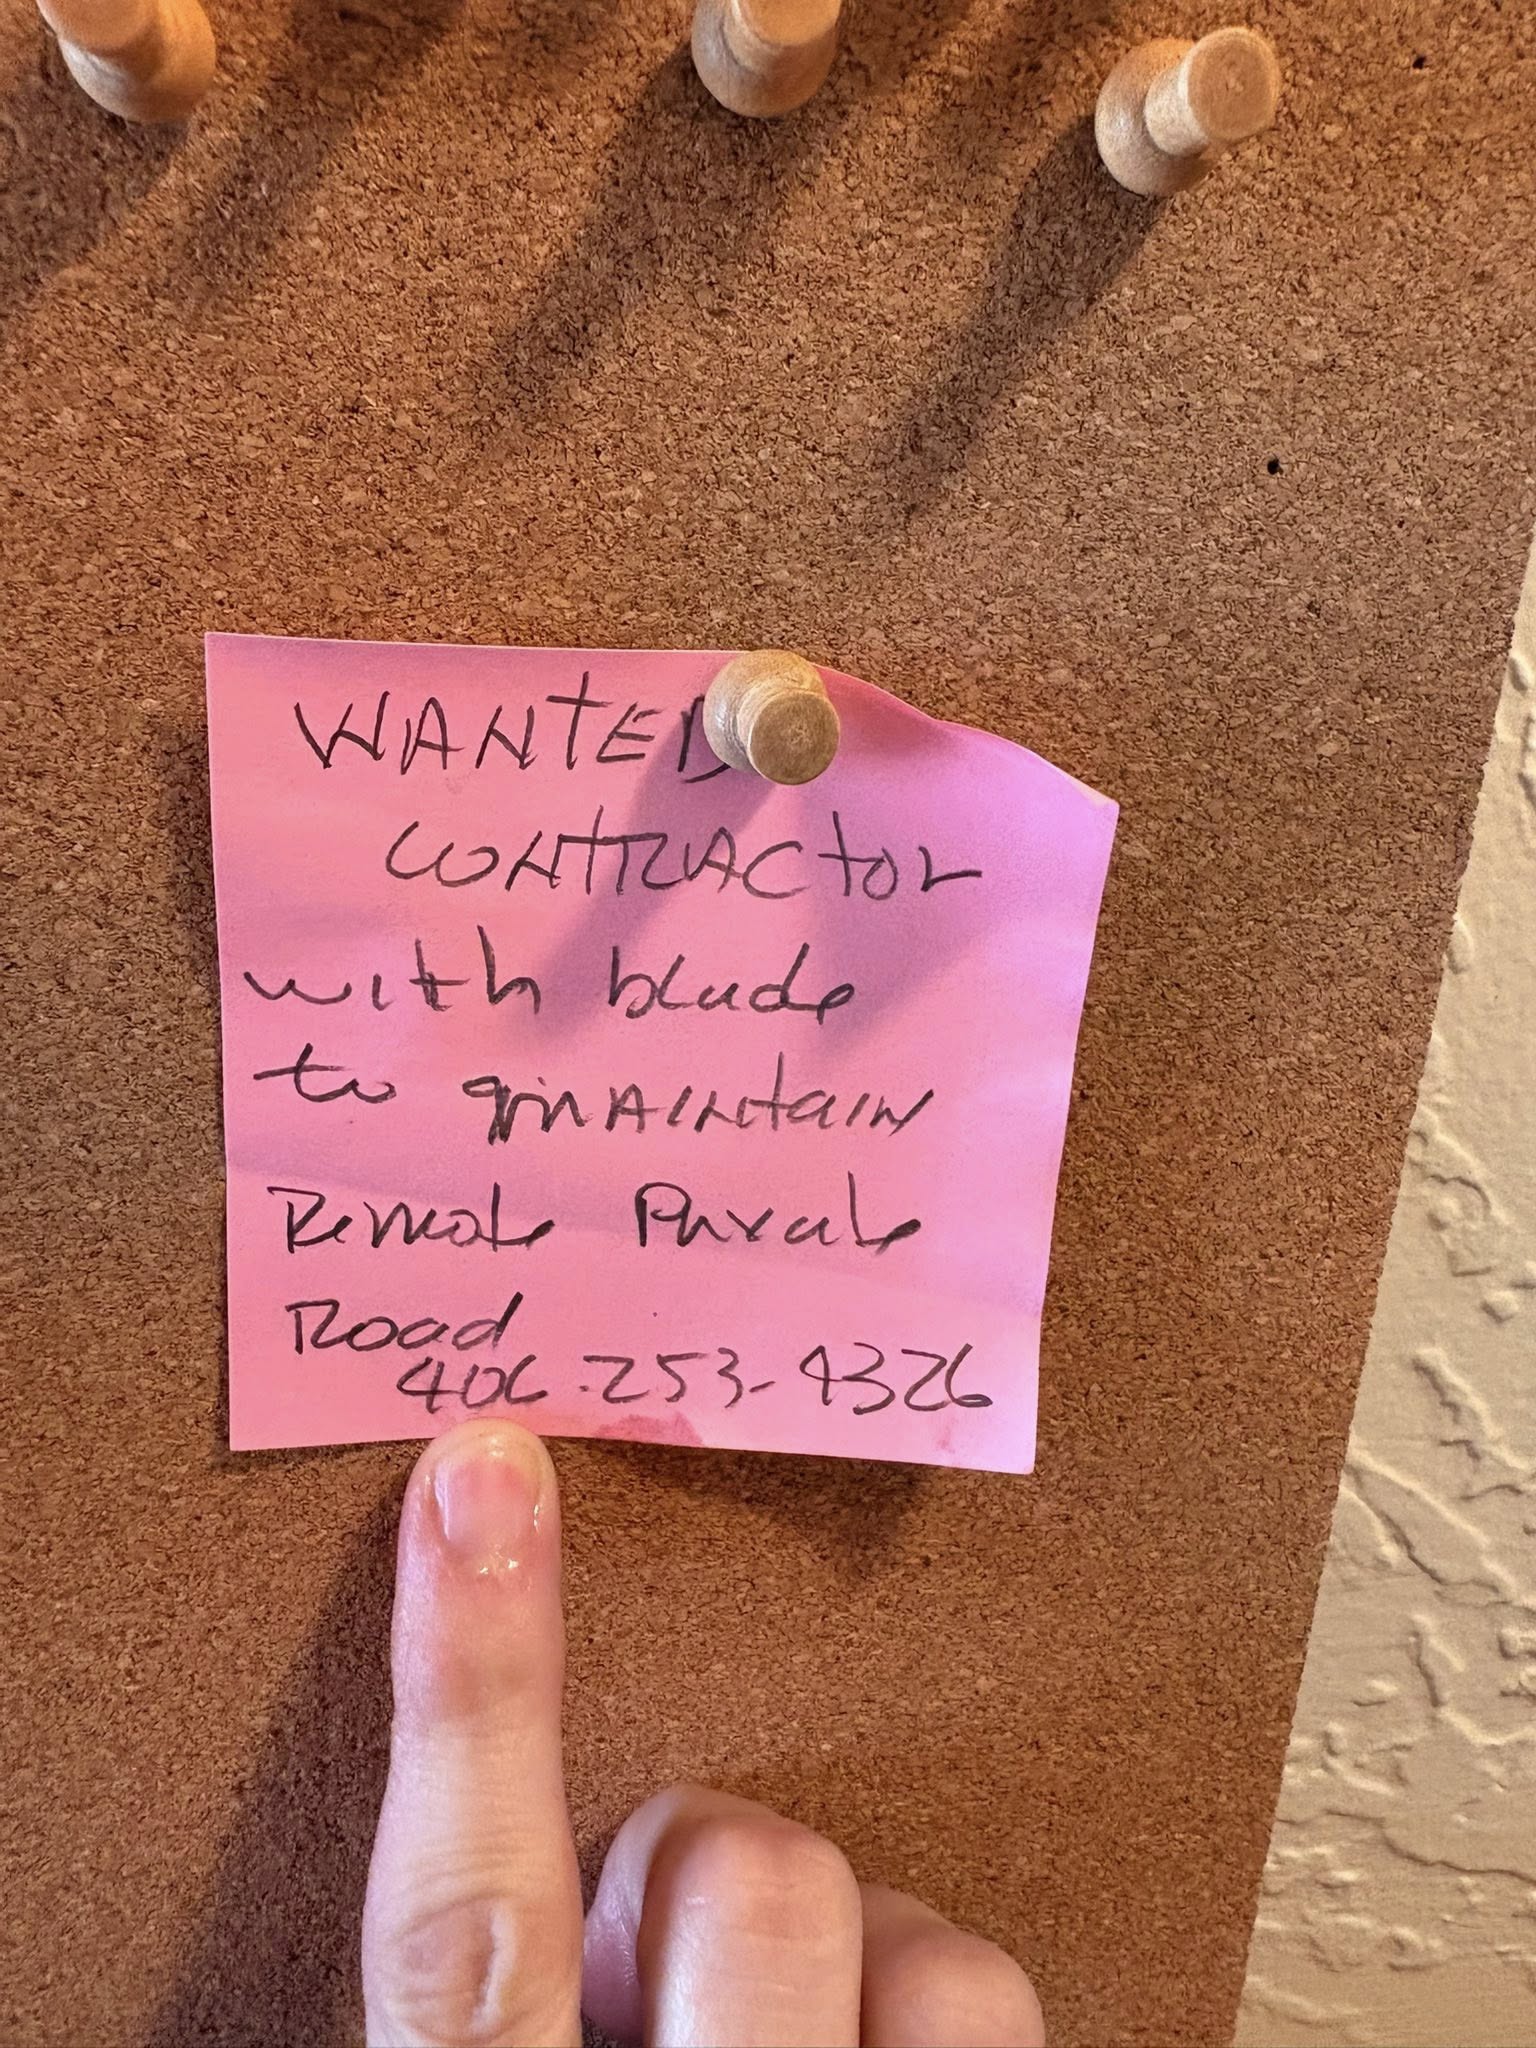 WANTED
CONTRACTOR
with blade
to maintain
Remote Private
Road
406-253-4326